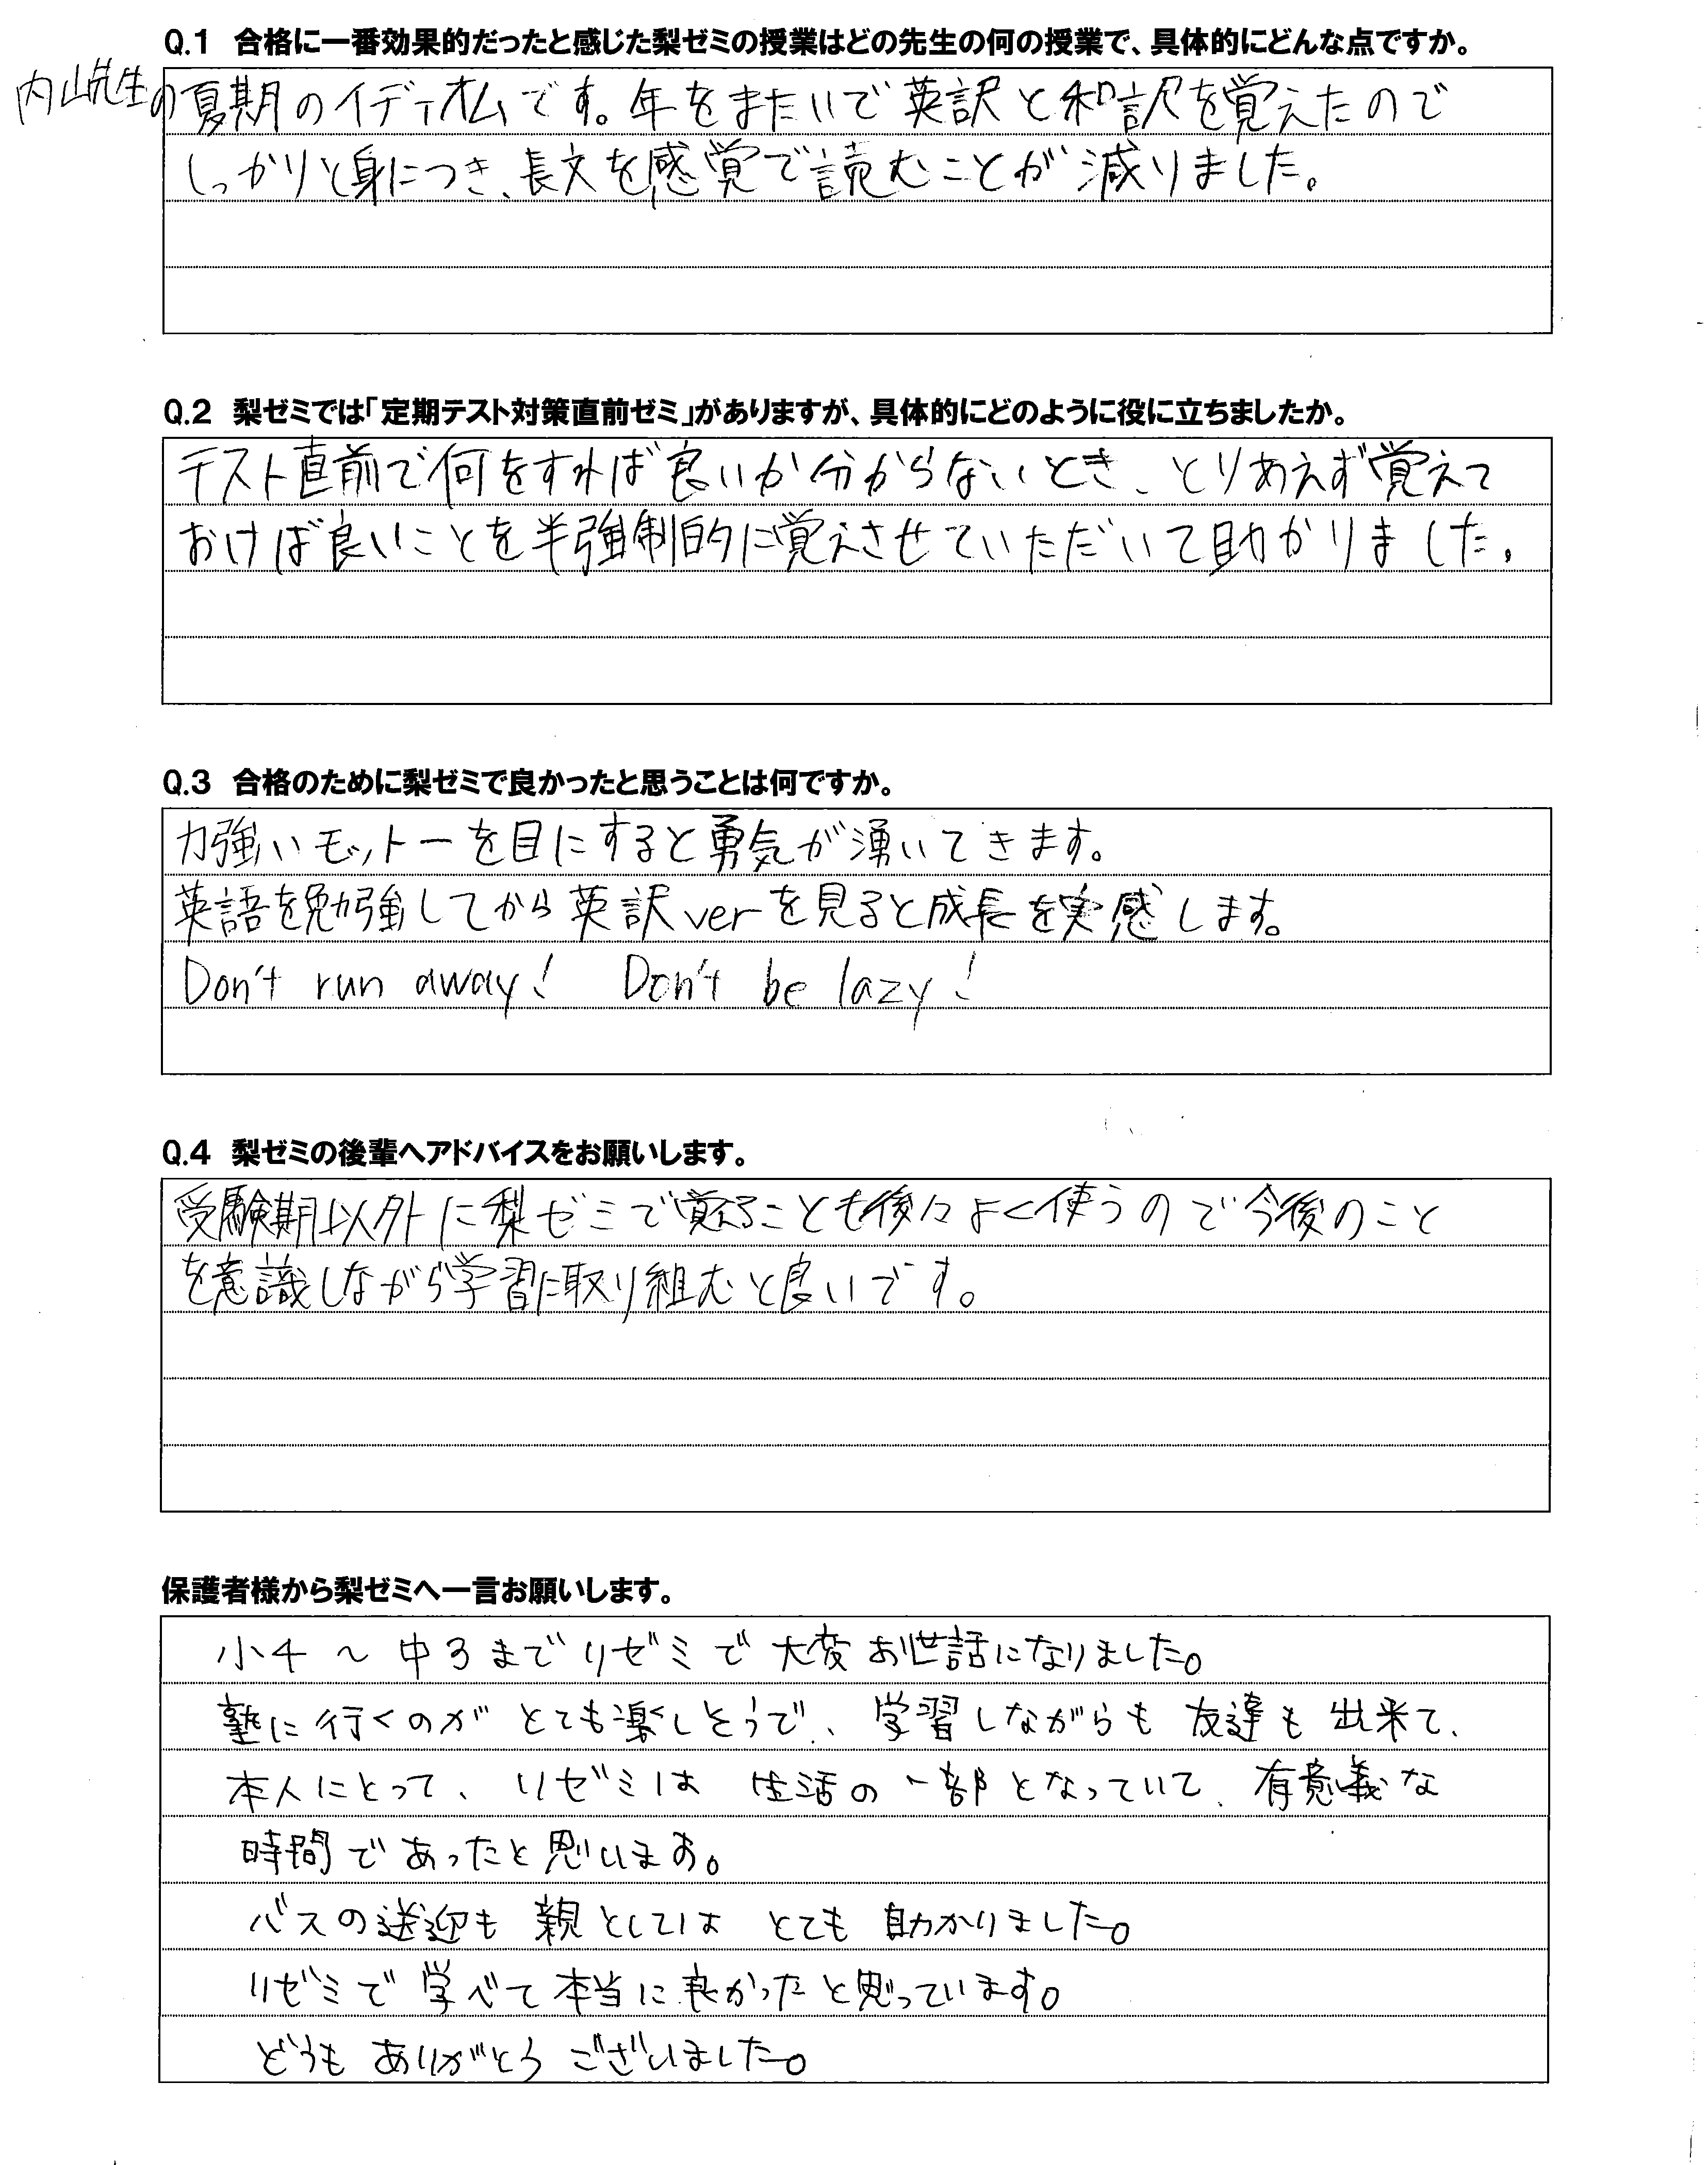 Q.1 合格に一番効果的だったと感じた梨ゼミの授業はどの先生の何の授業で、具体的にどんな点ですか。
内山先生の夏期のイディオムです。年をまたいで英訳と和訳を覚えたので
しっかりと身につき、長文を感覚で読むことが減りました。
Q.2 梨ゼミでは「定期テスト対策直前ゼミ」がありますが、具体的にどのように役に立ちましたか。
テスト直前で何をすれば良いか分からないとき、とりあえず覚えて
おけば良いことを半強制的に覚えさせていただいて助かりました。
Q.3 合格のために梨ゼミで良かったと思うことは何ですか。
力強いモットーを目にすると勇気が湧いてきます。
英語を勉強してから英訳verを見ると成長を実感します。
Don't run away! Don't be lazy!
Q.4 梨ゼミの後輩へアドバイスをお願いします。
受験期以外に梨ゼミで覚えることも後々よく使うので今後のこと
を意識しながら学習に取り組むと良いです。
保護者様から梨ゼミへ一言お願いします。
小4〜中3までリゼミで大変お世話になりました。
塾に行くのがとても楽しそうで、学習しながらも友達も出来て、
本人にとって、リゼミは生活の一部となっていて、有意義な
時間であったと思います。
バスの送迎も親としてはとても助かりました。
リゼミで学べて本当に良かったと思っています。
どうもありがとうございました。